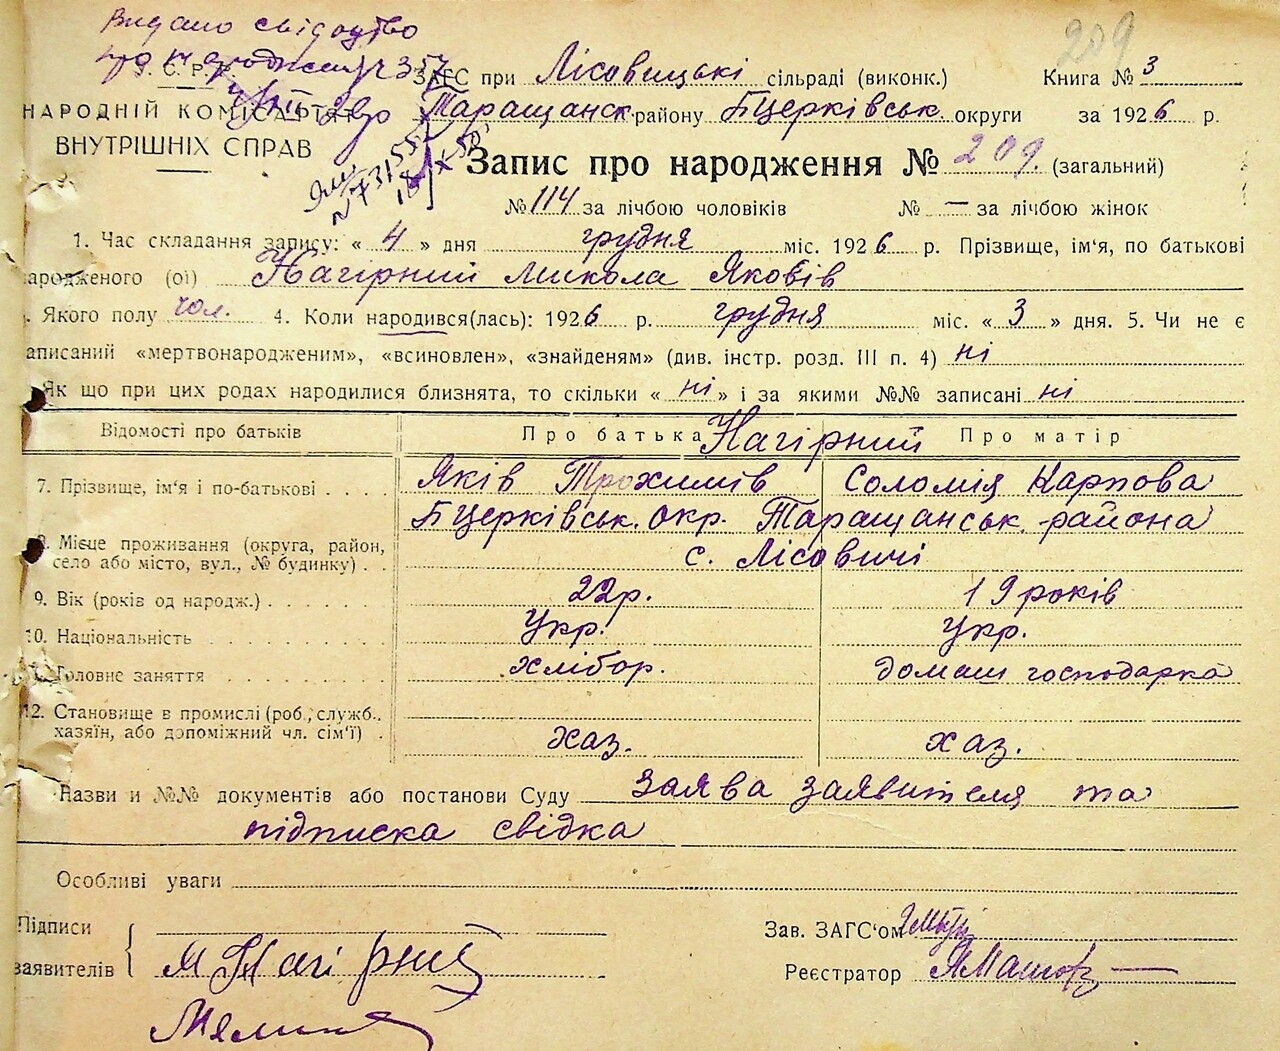 Видано свідоцтво
про народження
209
У. С. Р. Р.
ЗАГС при Лісовицькі сільраді (виконк.) Книга № 3
НАРОДНІЙ КОМІСАРІЯТ Таращанськ. району Бцерківськ. округи за 1926 р.
ВНУТРІШНІХ СПРАВ
Запис про народження № 209. (загальний)
№ 114 за лічбою чоловіків № — за лічбою жінок
1. Час складання запису: « 4 » дня грудня міс. 1926 р. Прізвище, ім'я, по батькові
народженого (ої) Нагірний Микола Яковів
. Якого полу чол. 4. Коли народився(лась): 1926 р. грудня міс. « 3 » дня. 5. Чи не є
аписаний «мертвонародженим», «всиновлен», «знайденям» (див. інстр. розд. III п. 4) ні
Як що при цих родах народилися близнята, то скільки « ні » і за якими №№ записані ні
Відомості про батьків Про батька Нагірний Про матір
7. Прізвище, ім'я і по-батькові . . . . Яків Трохимів Соломія Карпова
Бцерківськ. окр. Таращанськ. района
8. Місце проживання (округа, район,
село або місто, вул., № будинку) . . с. Лісовичі
9. Вік (років од народж.) . . . . . . . 22р. 19 років
10. Національність . . . . . . . . . . Укр. Укр.
11. Головне заняття . . . . . . . . . хлібор. домаш господарка
12. Становище в промислі (роб., служб.,
хазяїн, або допоміжний чл. сім'ї) . хаз. хаз.
Назви и №№ документів або постанови Суду Заява заявителя та
підписка свідка
Особливі уваги
Підписи
заявителів М Нагірний
Зав. ЗАГС'ом
Реєстратор